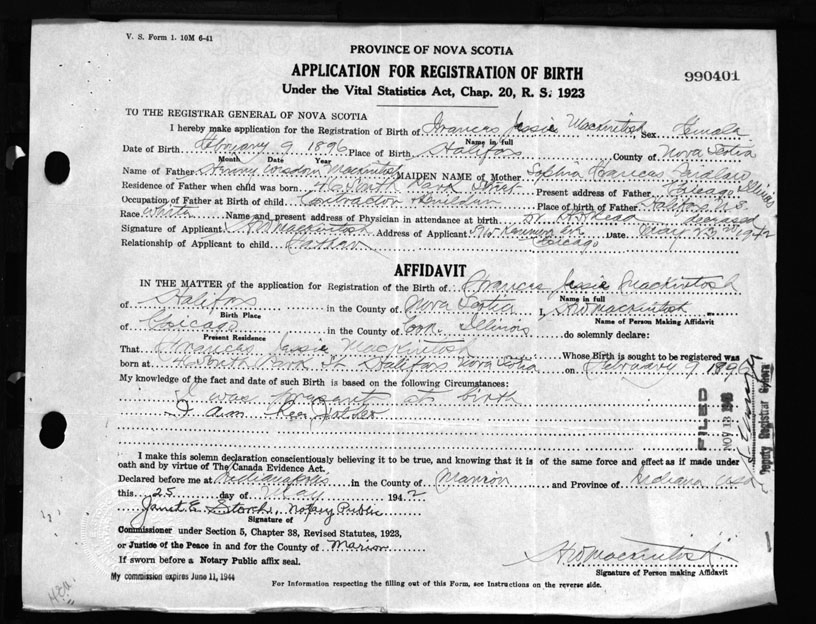 V. S. Form 1. 10M 6-41
PROVINCE OF NOVA SCOTIA
APPLICATION FOR REGISTRATION OF BIRTH
990401
Under the Vital Statistics Act, Chap. 20, R. S. 1923
TO THE REGISTRAR GENERAL OF NOVA SCOTIA
I hereby make application for the Registration of Birth of Frances Jessie Mackintosh Sex Female
Name in full
Date of Birth February 9 1896 Place of Birth Halifax County of Nova Scotia
Month Date Year
Name of Father Mackintosh MAIDEN NAME of Mother Sophia Frances
Residence of Father when child was born 46 South Park Street Present address of Father Chicago Illinois
Occupation of Father at Birth of child Contractor Builder Place of birth of Father Halifax N.S.
Race White Name and present address of Physician in attendance at birth Dr. deceased
Signature of Applicant H W Mackintosh Address of Applicant Date May 1942
Chicago
Relationship of Applicant to child Father
AFFIDAVIT
IN THE MATTER of the application for Registration of the Birth of Frances Jessie Mackintosh
Name in full
of Halifax in the County of Nova Scotia I, H W Mackintosh
Birth Place
Name of Person Making Affidavit
of Chicago in the County of Cook Illinois do solemnly declare:
Present Residence
That Frances Jessie Mackintosh Whose Birth is sought to be registered was
born at South Park St Halifax Nova Scotia on February 9 1896
My knowledge of the fact and date of such Birth is based on the following Circumstances:
I was present at birth
I am her Father
FILED
NOV 13
Deputy Registrar General
I make this solemn declaration conscientiously believing it to be true, and knowing that it is of the same force and effect as if made under
oath and by virtue of The Canada Evidence Act.
Declared before me at Indianapolis in the County of Marion and Province of Indiana USA
this 25 day of May 1942
Janet E. Storch, Notary Public
Signature of
Commissioner under Section 5, Chapter 38, Revised Statutes, 1923,
or Justice of the Peace in and for the County of Marion
If sworn before a Notary Public affix seal.
H W Mackintosh
Signature of Person making Affidavit
My commission expires June 11, 1944
For Information respecting the filling out of this Form, see Instructions on the reverse side.